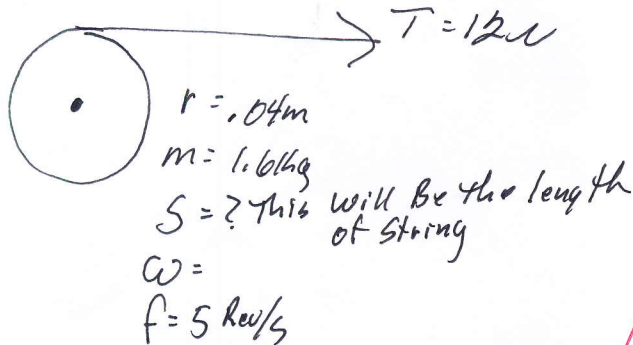 T = 12N
r = .04m
m = 1.61kg
S = ? This will Be the length
of string
ω =
f = 5 Rev/s